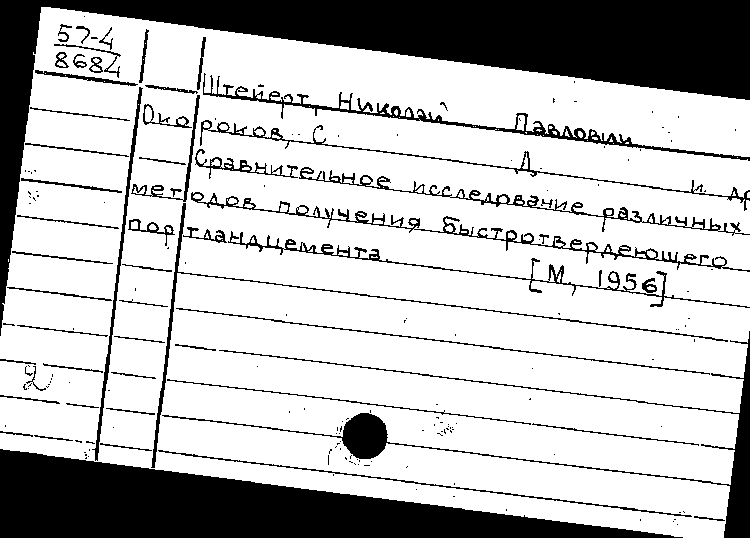 57-4
8684
Штейерт, Николай Павлович
Окороков, С Д и др
Сравнительное исследование различных
методов получения быстротвердеющего
портландцемента.
[М, 1956].
2